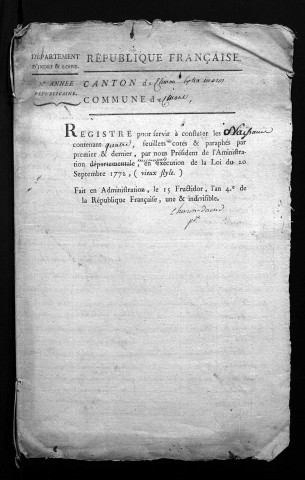 DÉPARTEMENT
D'INDRE & LOIRE.
RÉPUBLIQUE FRANÇAISE.
ANNÉE
RÉPUBLICAINE.
CANTON de
COMMUNE de
REGISTRE pour servir à constater les Naissance
contenant quatre, feuillets cotés & paraphés par
premier & dernier, par nous Président de l'Aministra-
tion départementale, en exécution de la Loi du 20
Septembre 1772, (vieux style.)
Fait en Administration, le 15 Fructidor, l'an 4.e de
la République Française, une & indivisible.